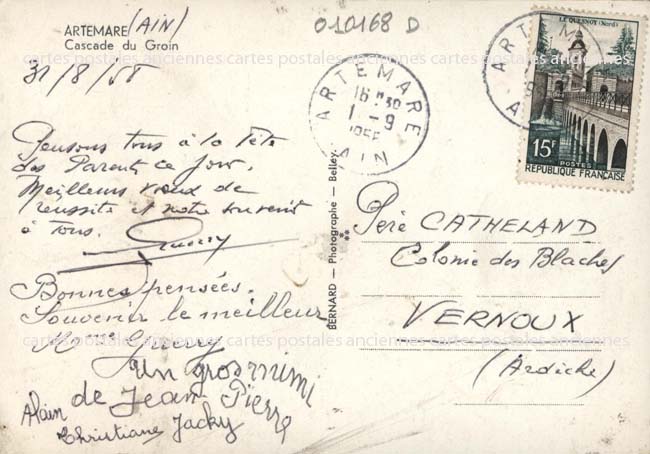 ARTEMARE (AIN)
Cascade du Groin
010168 D
31/8/58
ARTEMARE
16 H30
1 - 9
AIN
LE QUESNOY (Nord)
15F
POSTES
REPUBLIQUE FRANÇAISE
Pensons tous à la fête
des Parents ce jour.
Meilleurs vœux de
réussite et notre souvenir
à tous.
Guerry
Bonnes pensées.
Souvenir le meilleur
Mme Guerry
un gros mimi
de Jean Pierre
Alain
Christiane Jacky
BERNARD — Photographe — Belley
Père CATHELAND
Colonie des Blaches
VERNOUX
(Ardèche)
cartes postales anciennes cartes postales anciennes cartes postales anciennes
cartes postales anciennes cartes postales anciennes cartes postales anciennes